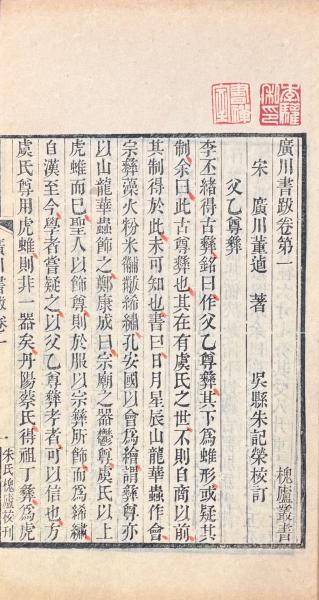 廣川書跋卷第一 槐廬叢書
宋 廣川董逌 著 吳縣朱記榮校訂
父乙尊彝
李丕緒得古彝銘曰作父乙尊彝其下為蜼形或疑其
制余曰此古尊彝也其在有虞氏之世不則自商以前
其制得於此未可知也書曰日月星辰山龍華蟲作會
宗彝藻火粉米黼黻絺繡孔安國以會為繪謂彝尊亦
以山龍華蟲飾之鄭康成曰宗廟之器鬱尊虞氏以上
虎蜼而已聖人以飾尊則於服以宗彝所飾而為絺繡
自漢至今學者嘗疑之以父乙尊彝考者可以信也方
虞氏尊用虎蜼則非一器矣丹陽蔡氏得祖丁彝為虎
廣川書跋卷一 一 朱氏槐廬校刊